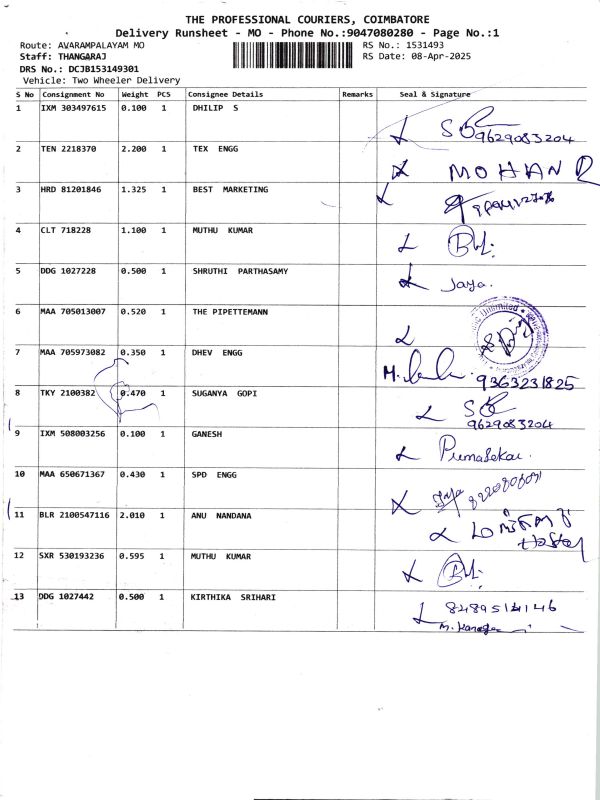 THE PROFESSIONAL COURIERS, COIMBATORE
Delivery Runsheet - MO - Phone No.:9047080280 - Page No.:1
Route: AVARAMPALAYAM MO RS No.: 1531493
Staff: THANGARAJ RS Date: 08-Apr-2025
DRS No.: DCJB153149301
Vehicle: Two Wheeler Delivery
S No Consignment No Weight PCS Consignee Details Remarks Seal & Signature
1 IXM 303497615 0.100 1 DHILIP S
9629083204
2 TEN 2218370 2.200 1 TEX ENGG MOHAN R
3 HRD 81201846 1.325 1 BEST MARKETING
4 CLT 718228 1.100 1 MUTHU KUMAR
5 DDG 1027228 0.500 1 SHRUTHI PARTHASAMY Jaya.
6 MAA 705013007 0.520 1 THE PIPETTEMANN
7 MAA 705973082 0.350 1 DHEV ENGG
9363231825
8 TKY 2100382 0.470 1 SUGANYA GOPI
9629083204
9 IXM 508003256 0.100 1 GANESH
10 MAA 650671367 0.430 1 SPD ENGG
11 BLR 2100547116 2.010 1 ANU NANDANA
12 SXR 530193236 0.595 1 MUTHU KUMAR
13 DDG 1027442 0.500 1 KIRTHIKA SRIHARI